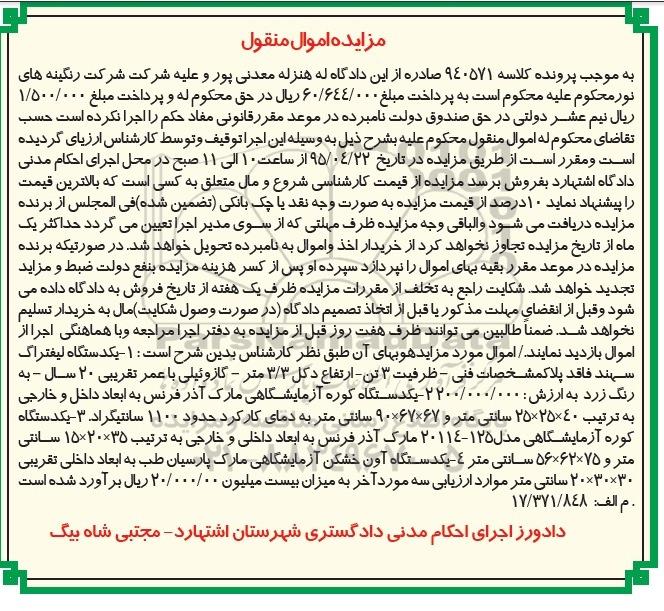 مزایده اموال منقول
به موجب پرونده کلاسه ۹۴۰۵۷۱ صادره از این دادگاه له هنزله معدنی پور و علیه شرکت شرکت رنگینه های
نورمحکوم علیه محکوم است به پرداخت مبلغ ۶۰/۶۴۴/۰۰۰ ریال در حق محکوم له و پرداخت مبلغ ۱/۵۰۰/۰۰۰
ریال نیم عشر دولتی در حق صندوق دولت نامبرده در موعد مقررقانونی مفاد حکم را اجرا نکرده است حسب
تقاضای محکوم له اموال منقول محکوم علیه بشرح ذیل به وسیله این اجرا توقیف وتوسط کارشناس ارزیای گردیده
است ومقرر است از طریق مزایده در تاریخ ۹۵/۰۴/۲۲ از ساعت ۱۰ الی ۱۱ صبح در محل اجرای احکام مدنی
دادگاه اشتهارد بفروش برسد مزایده از قیمت کارشناسی شروع و مال متعلق به کسی است که بالاترین قیمت
را پیشنهاد نماید ۱۰درصد از قیمت مزایده به صورت وجه نقد یا چک بانکی (تضمین شده)فی المجلس از برنده
مزایده دریافت می شود والباقی وجه مزایده ظرف مهلتی که از سوی مدیر اجرا تعیین می گردد حداکثر یک
ماه از تاریخ مزایده تجاوز نخواهد کرد از خریدار اخذ واموال به نامبرده تحویل خواهد شد. در صورتیکه برنده
مزایده در موعد مقرر بقیه بهای اموال را نپردازد سپرده او پس از کسر هزینه مزایده بنفع دولت ضبط و مزاید
تجدید خواهد شد. شکایت راجع به تخلف از مقررات مزایده ظرف یک هفته از تاریخ فروش به دادگاه داده می
شود وقبل از انقضای مهلت مذکور یا قبل از اتخاذ تصمیم دادگاه (در صورت وصول شکایت)مال به خریدار تسلیم
نخواهد شد. ضمناً طالبین می توانند ظرف هفت روز قبل از مزایده به دفتر اجراء مراجعه وبا هماهنگی اجرا از
اموال بازدید نمایند./ اموال مورد مزایدهوبهای آن طبق نظر کارشناس بدین شرح است : ۱-یکدستگاه لیفتراگ
سهند فاقد پلاکمشخصات فنی – ظرفیت ۳ تن- ارتفاع دکل ۳/۳ متر – گازوئیلی با عمر تقریبی ۲۰ سال – به
رنگ زرد به ارزش : ۲۰۰/۰۰۰/۰۰۰ ۲-یکدستگاه کوره آزمایشگاهی مارک آذر فرنس به ابعاد داخل و خارجی
به ترتیب ۴۰×۲۵×۲۵ سانتی متر و ۶۷×۶۷×۹۰ سانتی متر به دمای کارکرد حدود ۱۱۰۰ سانتیگراد. ۳-یکدستگاه
کوره آزمایشگاهی مدل۱۲۵-۲۰۱۱۴ مارک آذر فرنس به ابعاد داخلی و خارجی به ترتیب ۳۵×۲۰×۱۵ سانتی
متر و ۷۵×۶۲×۵۶ سانتی متر ۴-یکدستگاه آون خشکن آزمایشگاهی مارک پارسیان طب به ابعاد داخلی تقریبی
۳۰×۳۰×۲۰ سانتی متر موارد ارزیابی سه موردآخر به میزان بیست میلیون ۲۰/۰۰۰/۰۰ ریال برآورد شده است
. م الف: ۱۷/۳۷۱/۸۴۸
دادورز اجرای احکام مدنی دادگستری شهرستان اشتهارد– مجتبی شاه بیگ
ParsNamadData
۰۲۱-۸۸۳۴۹۶۷۰-۵